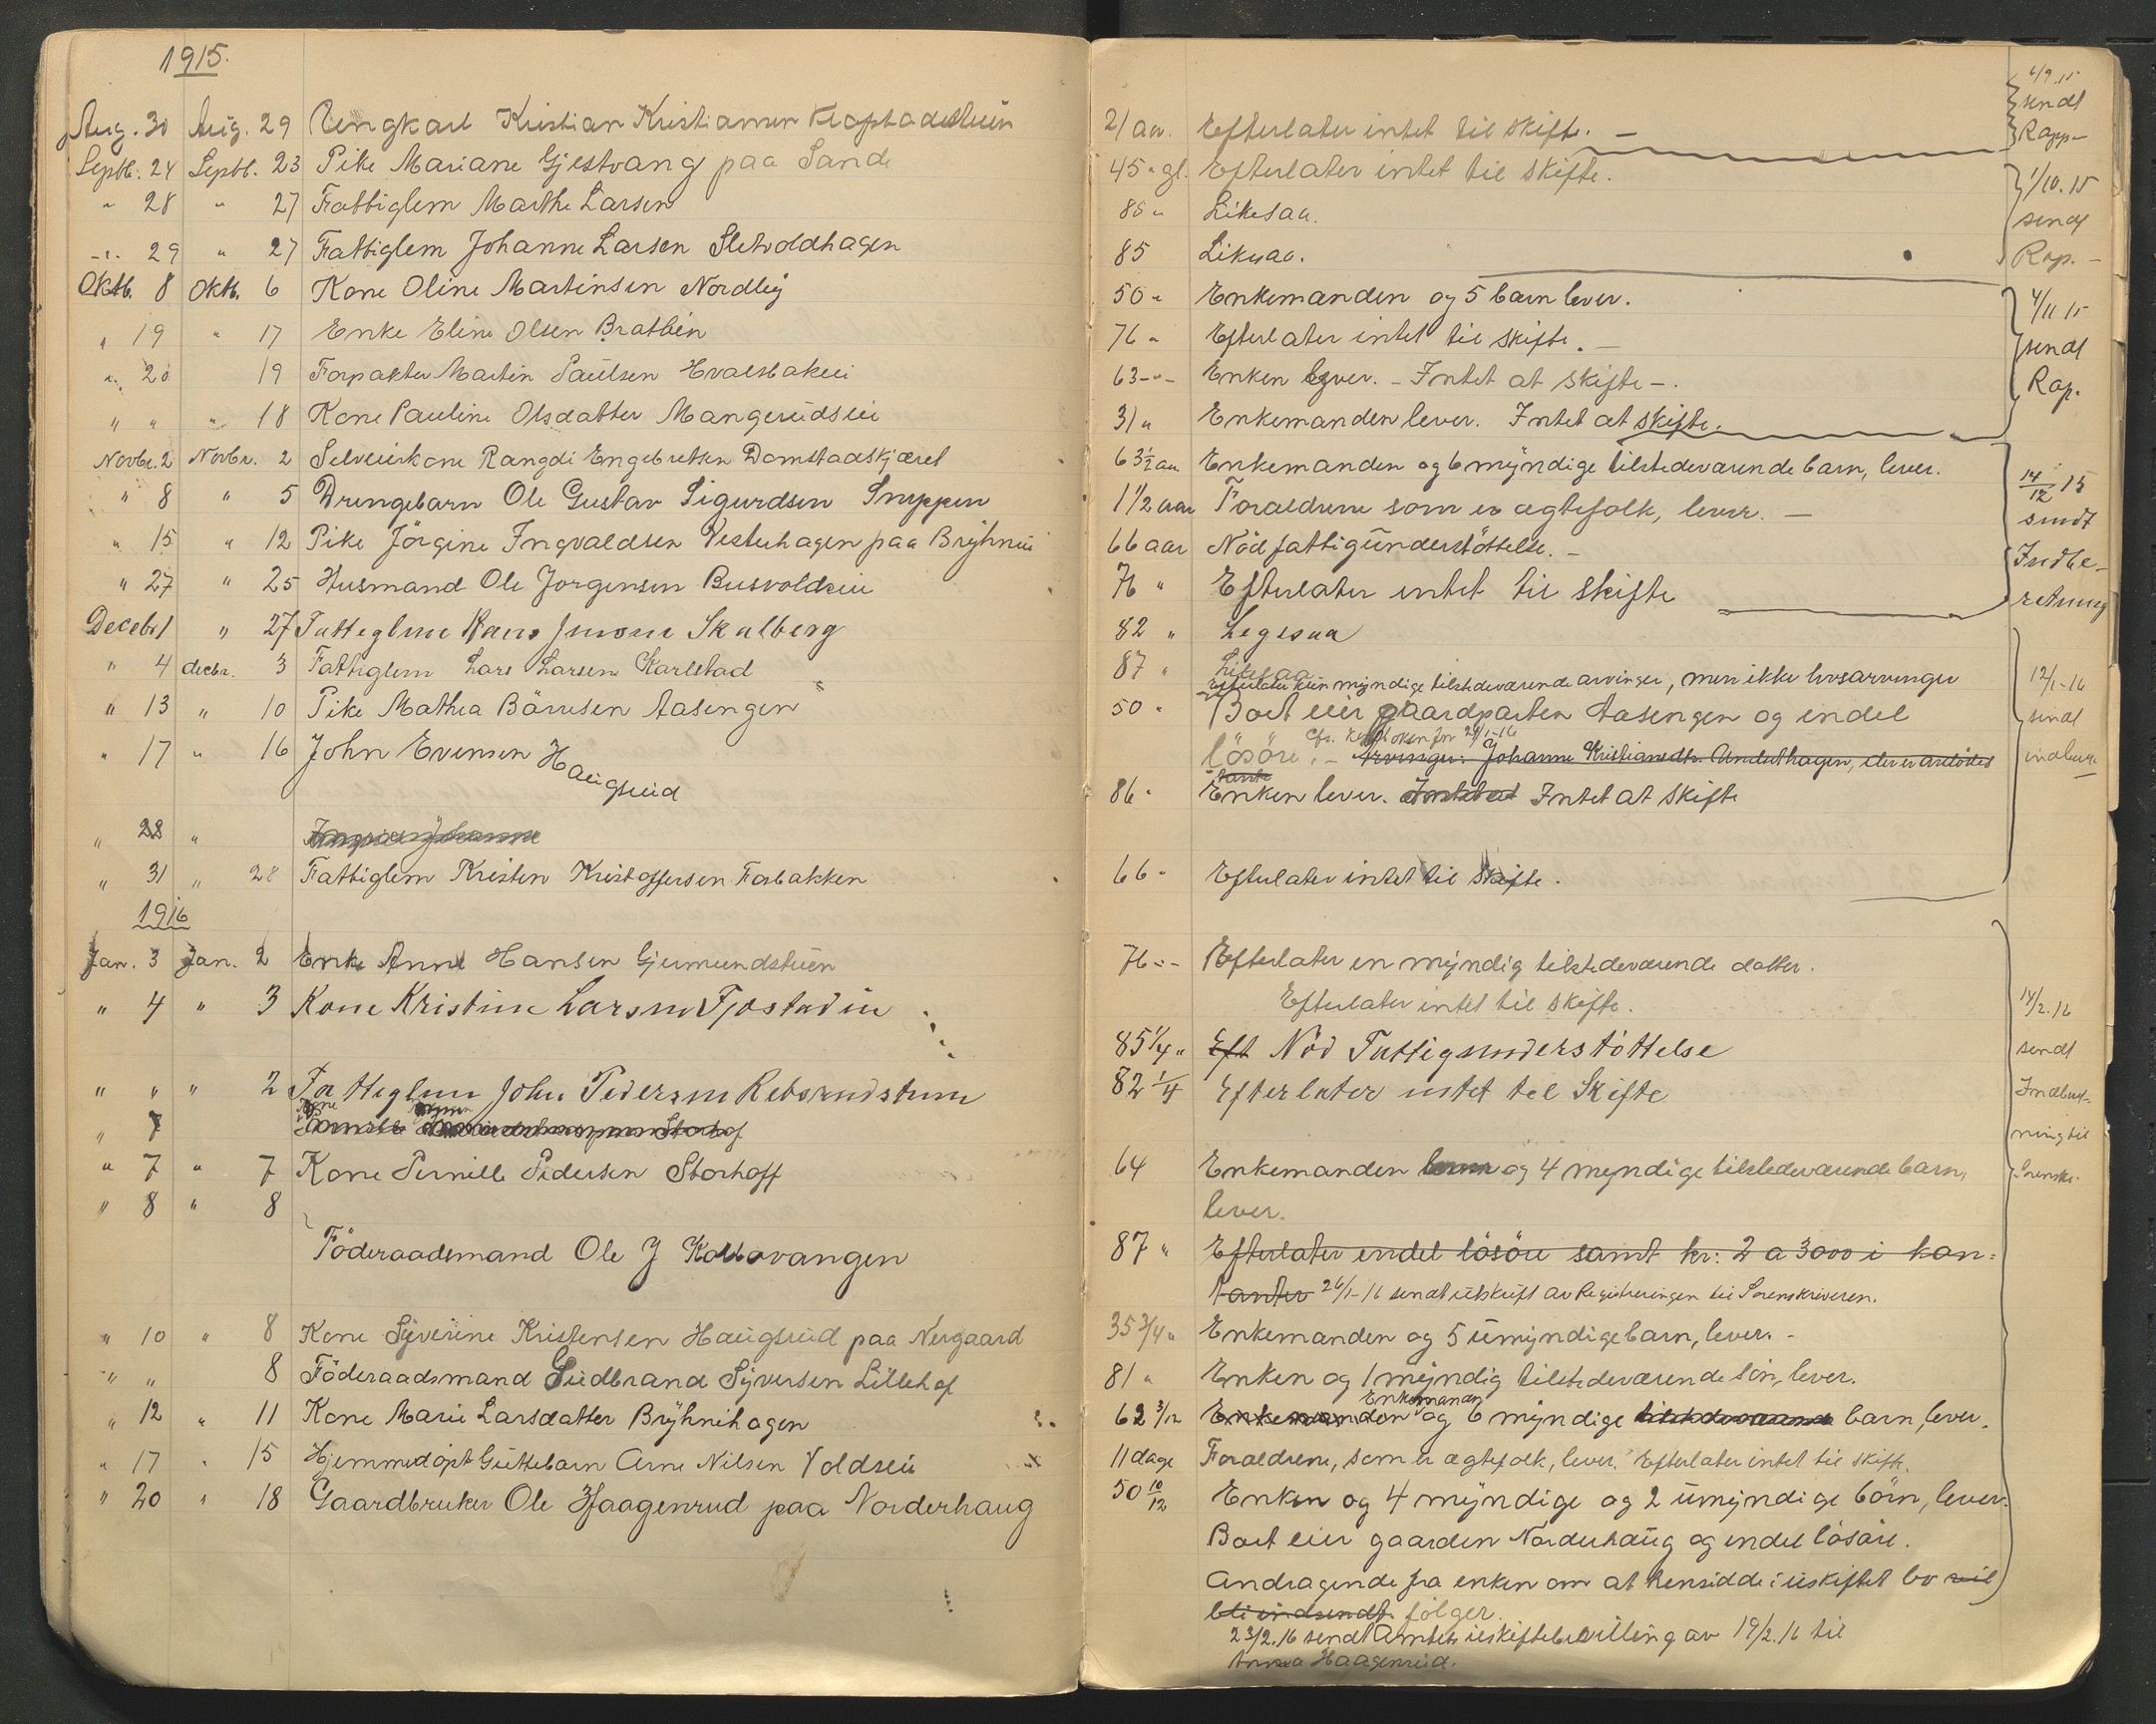 1915.
Aug. 30 Aug. 29 Ungkarl Kristian Kristiansen 21 aar. Efterlater intet til skifte. —
6/9 15 sendt Rapp-
Septb. 24 Septb. 23 Pike Mariane Gjestvang paa Sande 45 " gl. Efterlater intet til skifte.
1/10. 15 sendt Rap. -
" 28 " 27 Fattiglem Marthe Larsen 85 " Likesaa.
" 29 " 27 Fattiglem Johanne Larsen Sletvoldhagen 85 Likesaa.
Oktb. 8 Oktb. 6 Kone Oline Martinsen Nordlig 50 " Enkemanden og 5 barn lever.
4/11 15 sendt Rap.
" 19 " 17 Enke Eline Olsen Bratlien 76 " Efterlater intet til skifte. —
" 20 19 Forpakter Martin Paulsen Hvalsbakeie 63 - " - Enken lever. - Intet at skifte -.
" " " 18 Kone Pauline Olsdatter Mangerudseie 31 " Enkemanden lever. Intet at skifte.
Novbr. 2 Novbr. 2 Selveierkone Rangdi Engebretsen Domstadskjæret 63 1/2 aar Enkemanden og 6 myndige tilstedeværende barn, lever.
14/12 15 sendt Indbe-retning
" 8 " 5 Drengebarn Ole Gustav Sigurdsen Snippen 1 1/2 aar Forældrene som er ægtefolk, lever. —
" 15 " 12 Pike Jörgine Ingvaldsen Vesterhagen paa Bryhnie 66 aar Nöd fattigunderstöttelse. -
" 27 " 25 Husmand Ole Jorgensen Busvoldseie 76 " Efterlater intet til skifte
Decebr 1 " 27 Fattiglem Hans Jensen Skalberg 82 " Legesaa
" 4 decbr. 3 Fattiglem Lars Larsen Karlstad 87 " Likesaa
12/1-16 sendt indber.
Efterlater kun myndige tilstedeværende arvinger, men ikke livsarvinger
" 13 " 10 Pike Mathea Börresen Aasengen 50 " Boet eier gaardparten Aasengen og endel
lösöre. - Arvinger: Johanne Kristiansdtr. Anderthagen, der er avdödes
tante
" 17 " 16 John Evensen Haugsrud 86 " Enken lever. Intet at Intet at skifte
" 28 "
" 31 " 28 Fattiglem Kristen Kristoffersen Forbakken 66 " Efterlater intet til skifte.
1916
Jan. 3 Jan. 2 Enke Anne Hansen Gjermundstuen 76 " - Efterlater en myndig tilstedeværende datter.
Efterlater intet til skifte.
14/2. 16 sendt Indberetning til Sorenskr.
" 4 " 3 Kone Kristine Larsen Fjostadeie 85 1/4 " Eft Nöd Fattigunderstöttelse
" " " 2 Fattiglem John Pedersen Rebsrudstuen 82 1/4 Efterlater intet til Skifte
" 7
" 7 " 7 Kone Pernille Pedersen Storhoff 64 Enkemanden og 4 myndige tilstedeværende barn,
lever.
" 8 " 8
Föderaadsmand Ole J Kolbovangen 87 " Efterlater endel lösöre samt kr: 2 a 3000 i kon-
tanter 26/1-16 sendt utskrift av Registreringen til Sorenskriveren.
" 10 " 8 Kone Syverine Kristensen Haugsrud paa Nergaard 35 3/4 " Enkemanden og 5 umyndige barn, lever. -
" " 8 Föderaadsmand Gudbrand Syversen Lillehof 81 " Enken og 1 myndig tilstedeværende sön, lever.
Enkemanden
" 12 " 11 Kone Marie Larsdatter Bryhnihagen 62 3/12 Enkemanden og 6 myndige tilstedeværende barn, lever.
" 17 " 15 Hjemmedöpt Guttebarn Arne Nilsen Voldseie 11 dage Forældrene, som er ægtefolk, lever. Efterlater intet til skifte.
" 20 " 18 Gaardbruker Ole Haagenrud paa Norderhaug 50 10/12 Enken og 4 myndige og 2 umyndige börn, lever.
Boet eier gaarden Norderhaug og endel lösöre.
Andragende fra enken om at hensidde i uskiftet bo vil
bli indsendt. fölger.
23/2. 16 sendt Amtets uskiftebevilling av 19/2. 16 til
Anna Haagenrud.